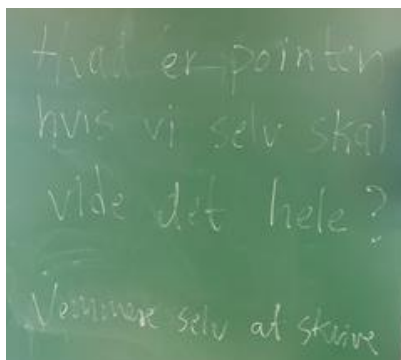 Hvad er pointen
hvis vi selv skal
vide det hele?
selv at skrive